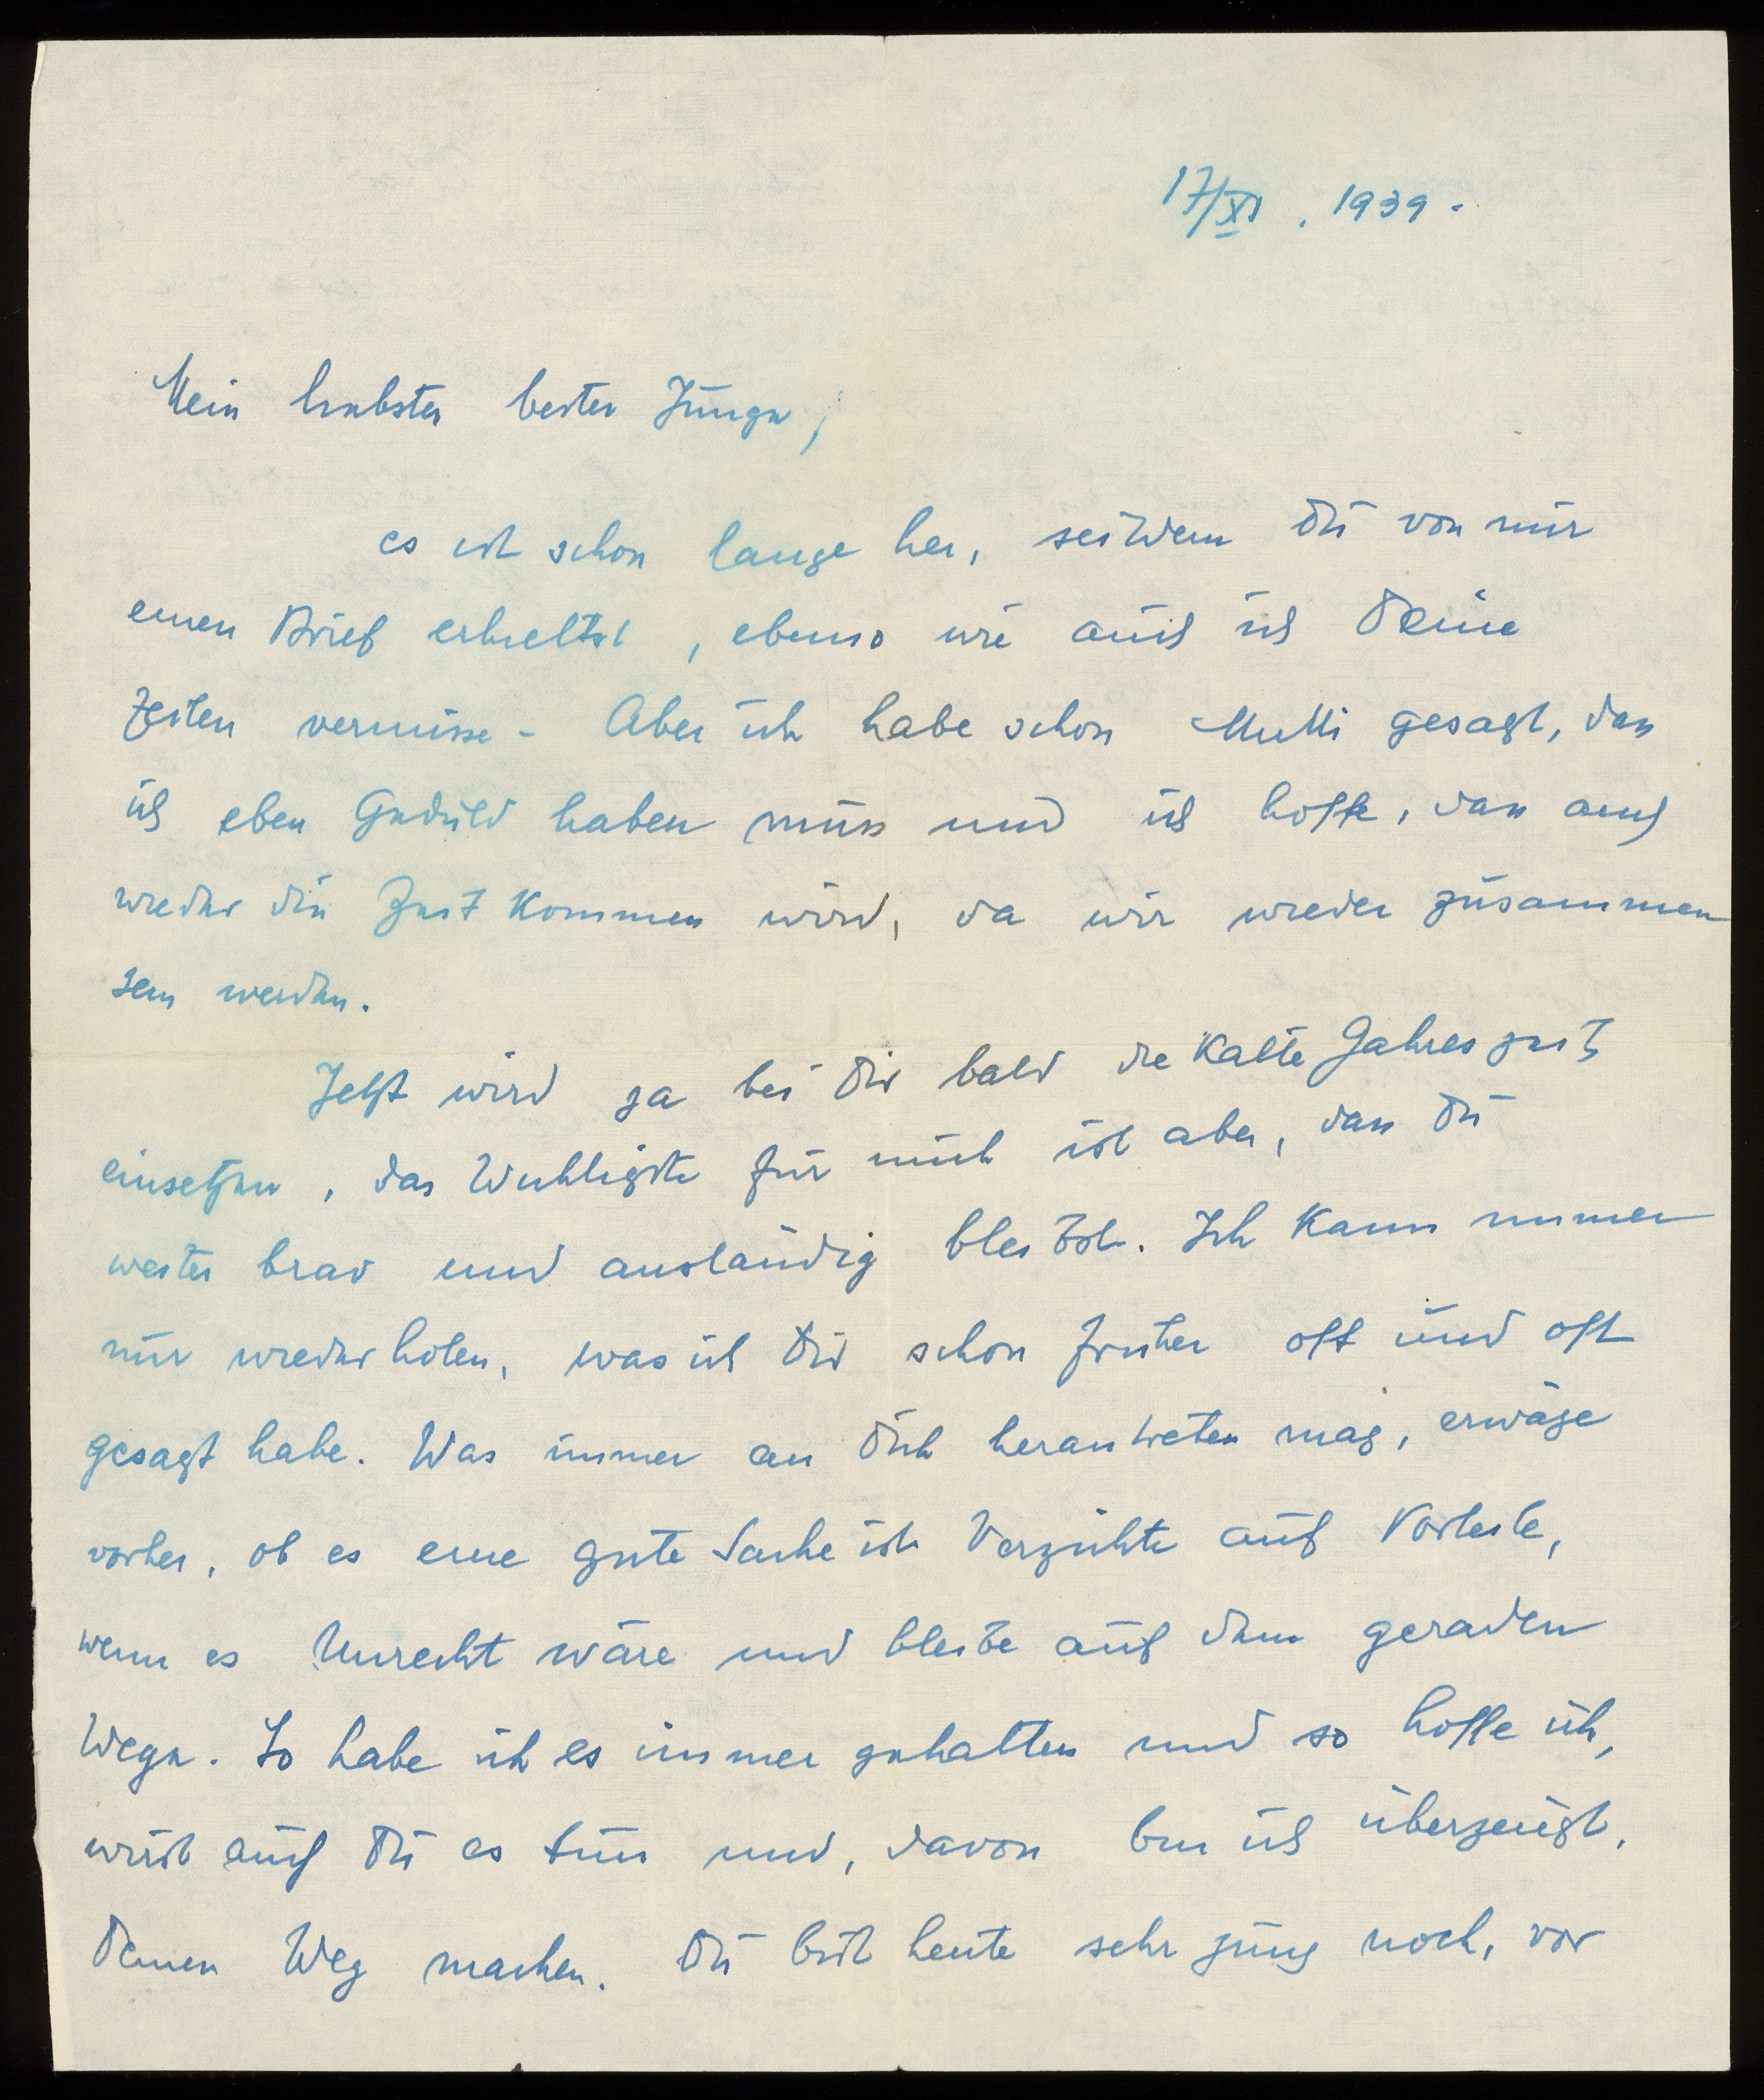 17/XI. 1939.
Mein liebster bester Junge,
es ist schon lange her, seitdem Du von mir
einen Brief erhieltst, ebenso wie auch ich Deine
Zeilen vermisse - Aber ich habe schon Mutti gesagt, dass
ich eben Geduld haben muss und ich hoffe, dass auch
wieder die Zeit kommen wird, da wir wieder zusammen
sein werden.
Jetzt wird ja bei Dir bald die kalte Jahreszeit
einsetzen, das Wichtigste für mich ist aber, dass Du
weiter brav und anständig bleibst. Ich kann immer
nur wiederholen, was ich Dir schon früher oft und oft
gesagt habe. Was immer an Dich herantreten mag, erwäge
vorher, ob es eine gute Sache ist. Verzichte auf Vorteile,
wenn es Unrecht wäre und bleibe auf dem geraden
Wege. So habe ich es immer gehalten und so hoffe ich,
wirst auch Du es tun und, davon bin ich überzeugt,
Deinen Weg machen. Du bist heute sehr jung noch, vor